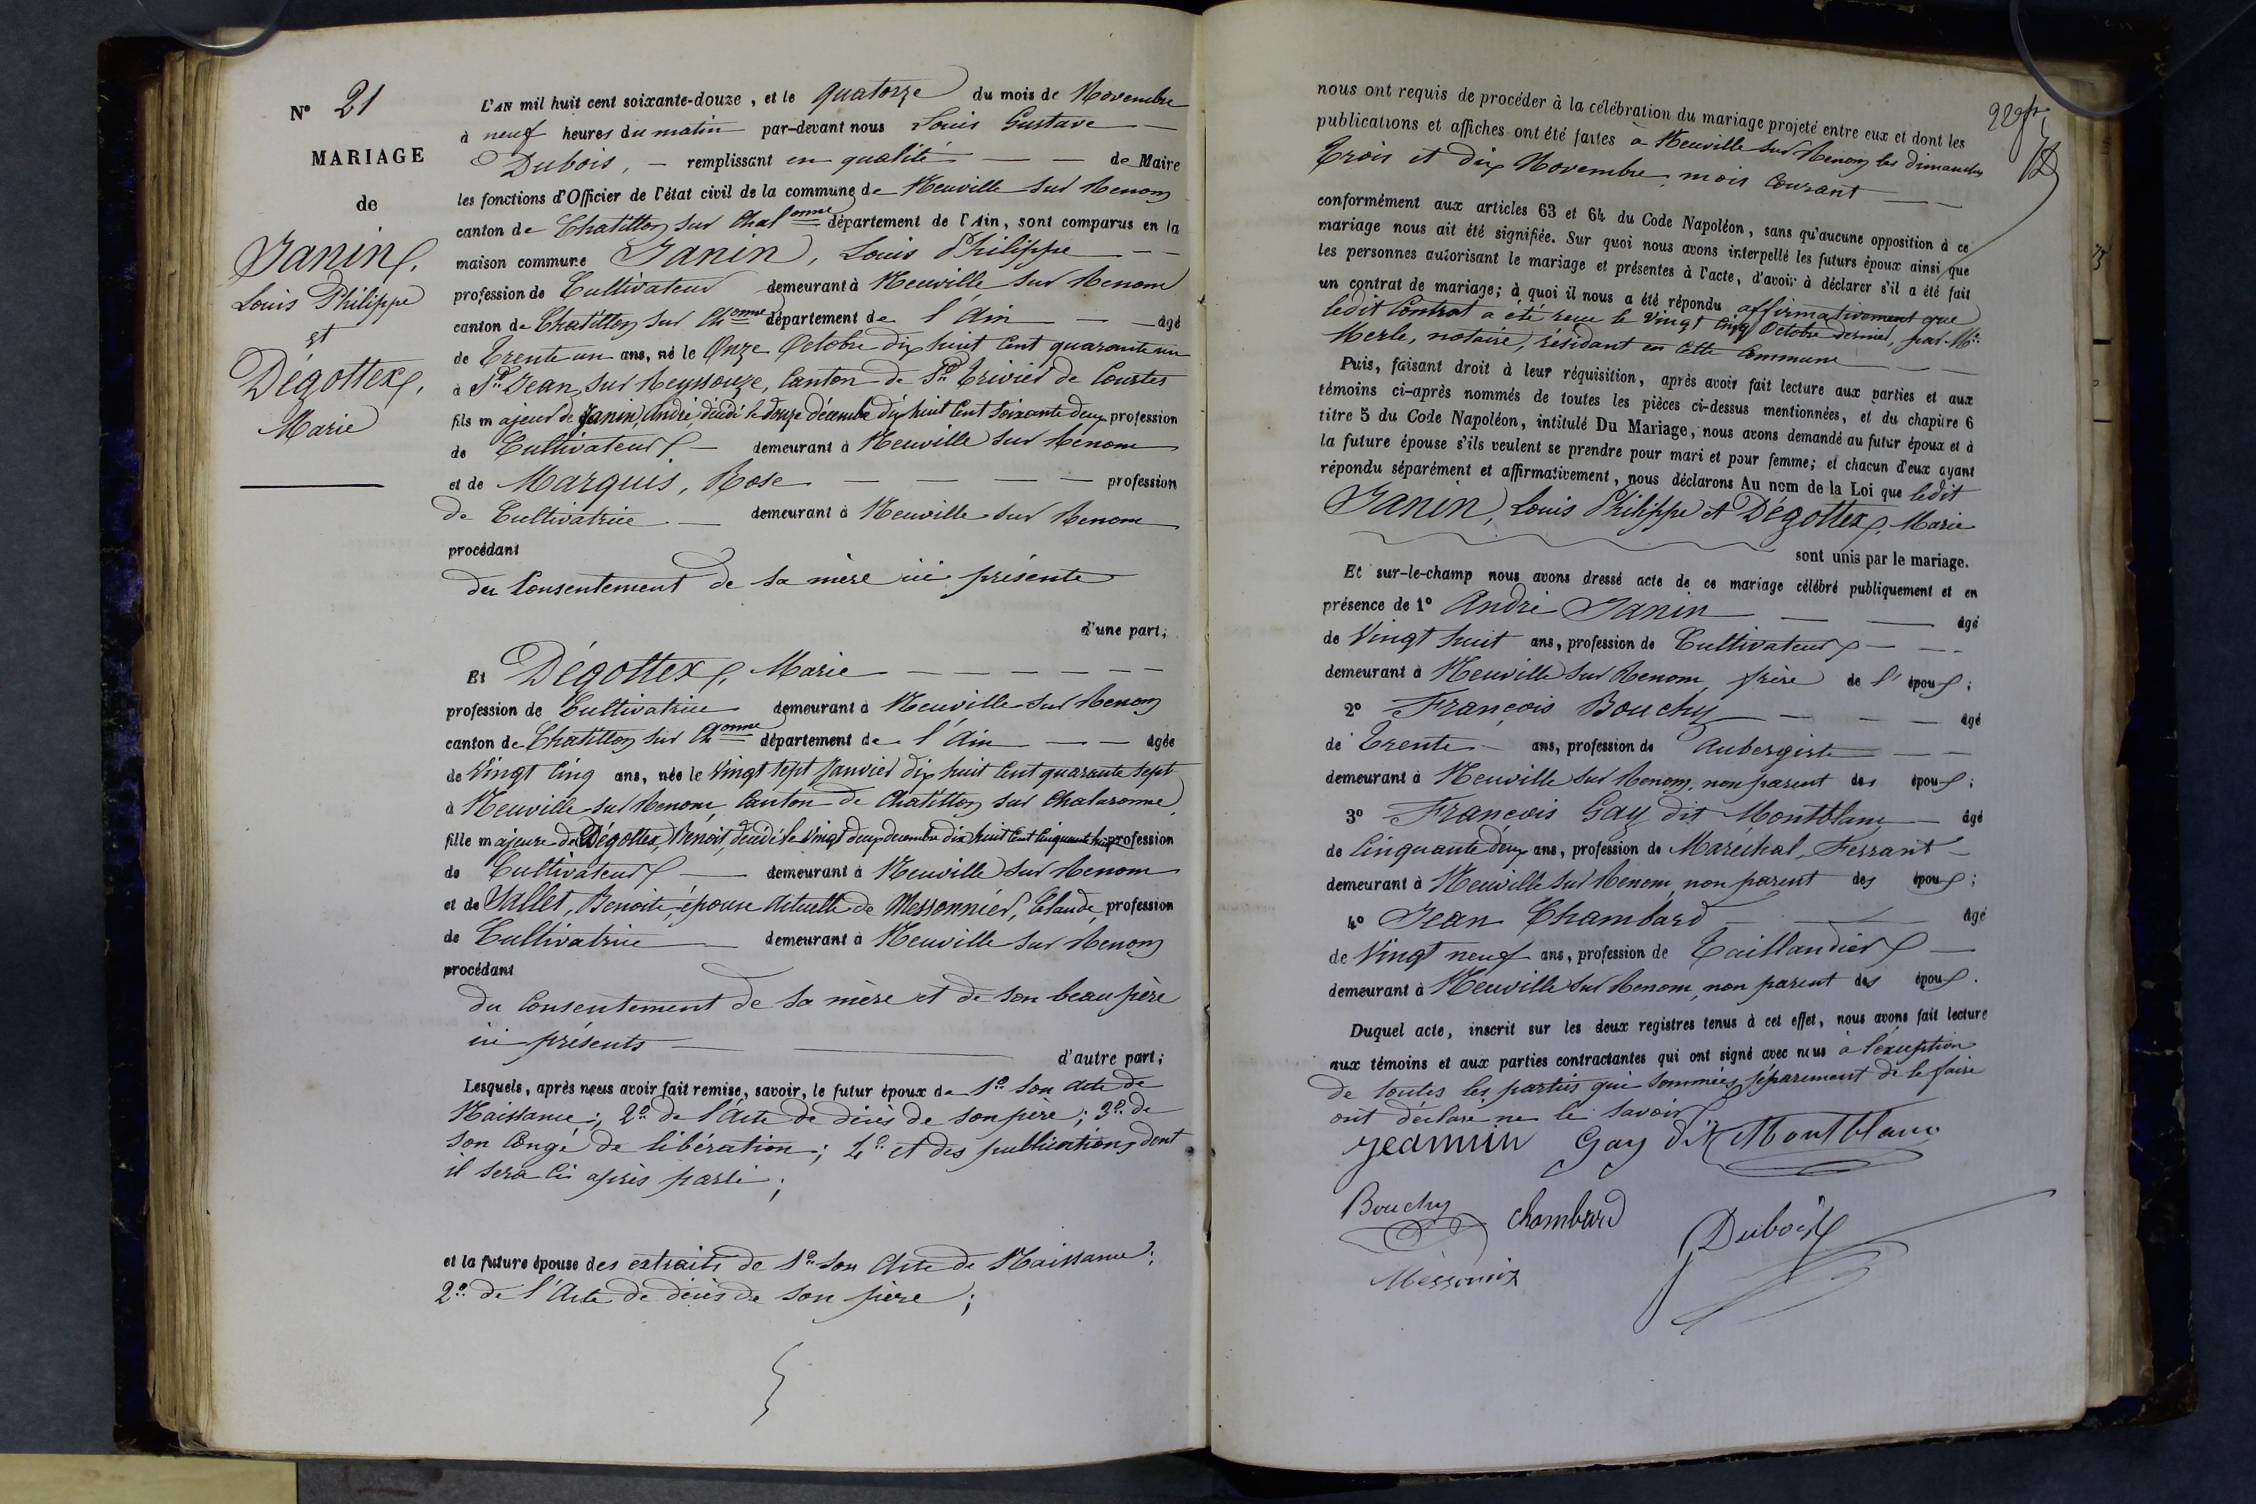 N° 21
MARIAGE
de
Janin,
Louis Philippe
et
Dégottex,
Marie
L'AN mil huit cent soixante-douze, et le quatorze du mois de Novembre
à neuf heures du matin par-devant nous Louis Gustave
Dubois, remplissant en qualité de Maire
les fonctions d'Officier de l'état civil de la commune de Neuville sur Renom
canton de Chatillon sur Chalonne département de l'Ain, sont comparus en la
maison commune Janin, Louis Philippe
profession de Cultivateur demeurant à Neuville sur Renom
canton de Chatillon sur Chonne département de l'Ain âgé
de Trente un ans, né le Onze Octobre dix huit cent quarante un
à St Jean sur Reyssouze, Canton de St Trivier de Courtes
fils majeur de Janin, André, décédé le douze décembre dix huit cent soixante deux profession
de Cultivateur demeurant à Neuville sur Renom
et de Marquis, Rose profession
de Cultivatrice demeurant à Neuville sur Renom
procédant
du Consentement de sa mère ici présente
d'une part;
Et Dégottex, Marie
profession de Cultivatrice demeurant à Neuville sur Renom
canton de Chatillon sur Chonne département de l'Ain âgée
de Vingt cinq ans, née le Vingt sept Janvier dix huit cent quarante sept
à Neuville sur Renom, Canton de Chatillon sur Chalaronne
fille majeure de Dégottex, Benoit, décédé le Vingt deux decembre dix huit cent cinquante profession
de Cultivateur demeurant à Neuville sur Renom
et de Vallet, Benoite, épouse actuelle de Messonnier, Claude, profession
de Cultivatrice demeurant à Neuville sur Renom
procédant
du Consentement de sa mère et de son beau père
ici présents
d'autre part;
Lesquels, après nous avoir fait remise, savoir, le futur époux de 1° son acte de
Naissance; 2° de l'acte de décès de son père; 3° de
son Congé de libération; 4° et des publications dont
il sera ci après parlé;
et la future épouse des extraits de 1° son Acte de Naissance;
2° de l'Acte de décès de son père;
nous ont requis de procéder à la célébration du mariage projeté entre eux et dont les
publications et affiches ont été faites à Neuville sur Renom les dimanches
Trois et dix Novembre, mois Courant
conformément aux articles 63 et 64 du Code Napoléon, sans qu'aucune opposition à ce
mariage nous ait été signifiée. Sur quoi nous avons interpellé les futurs époux ainsi que
les personnes autorisant le mariage et présentes à l'acte, d'avoir à déclarer s'il a été fait
un contrat de mariage; à quoi il nous a été répondu affirmativement que
ledit Contrat a été reçu le Vingt cinq Octobre dernier, par Me
Merle, notaire, résidant en cette Commune
Puis, faisant droit à leur réquisition, après avoir fait lecture aux parties et aux
témoins ci-après nommés de toutes les pièces ci-dessus mentionnées, et du chapitre 6
titre 5 du Code Napoléon, intitulé Du Mariage, nous avons demandé au futur époux et à
la future épouse s'ils veulent se prendre pour mari et pour femme; et chacun d'eux ayant
répondu séparément et affirmativement, nous déclarons Au nom de la Loi que ledit
Janin, Louis Philippe et Dégottex, Marie
sont unis par le mariage.
Et sur-le-champ nous avons dressé acte de ce mariage célébré publiquement et en
présence de 1° André Janin âgé
de Vingt huit ans, profession de Cultivateur
demeurant à Neuville sur Renom frère de l'époux;
2° François Bouchy âgé
de Trente ans, profession de Aubergiste
demeurant à Neuville sur Renom, non parent des époux;
3° François Gay dit Montblanc âgé
de Cinquante deux ans, profession de Maréchal-Ferrant
demeurant à Neuville sur Renom, non parent des époux;
4° Jean Chambard âgé
de Vingt neuf ans, profession de Taillandier
demeurant à Neuville sur Renom, non parent des époux.
Duquel acte, inscrit sur les deux registres tenus à cet effet, nous avons fait lecture
aux témoins et aux parties contractantes qui ont signé avec nous à l'exception
de toutes les parties qui sommées séparement de le faire
ont déclaré ne le savoir
Jeannin Gay dit Montblanc
Bouchy Chambard Dubois